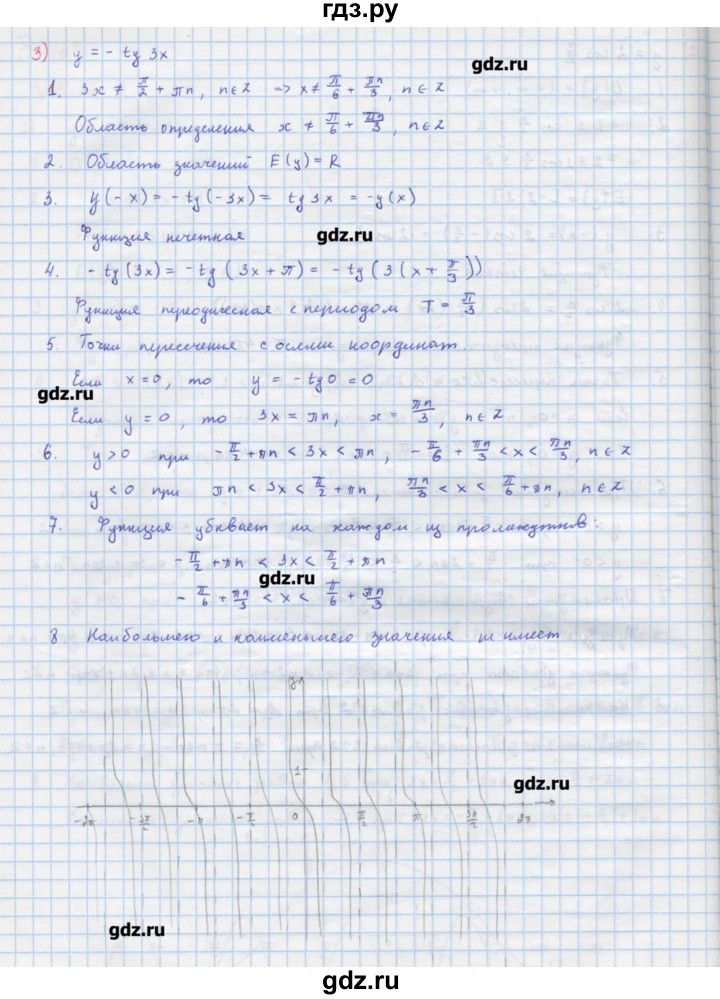 гдз.ру
3) y = - tg 3x
gdz.ru
1. 3x ≠ π/2 + πn, n∈Z => x ≠ π/6 + πn/3, n∈Z
Область определения x ≠ π/6 + πn/3, n∈Z
2. Область значений E(y) = R
3. y(-x) = -tg(-3x) = tg3x = -y(x)
Функция нечетная
gdz.ru
4. -tg(3x) = -tg(3x+π) = -tg(3(x+π/3))
Функция периодическая с периодом T = π/3
5. Точки пересечения с осями координат.
Если x=0, то y = -tg0 = 0
gdz.ru
Если y=0, то 3x = πn, x = πn/3, n∈Z
6. y>0 при -π/2+πn < 3x < πn, -π/6 + πn/3 < x < πn/3, n∈Z
y<0 при πn < 3x < π/2+πn, πn/3 < x < π/6+πn, n∈Z
7. Функция убывает на каждом из промежутков:
-π/2+πn < 3x < π/2+πn
gdz.ru
-π/6 + πn/3 < x < π/6 + πn/3
8 Наибольшего и наименьшего значения не имеет
y
1
gdz.ru
-2π -3π/2 -π -π/2 0 π/2 π 3π/2 2π
gdz.ru
gdz.ru